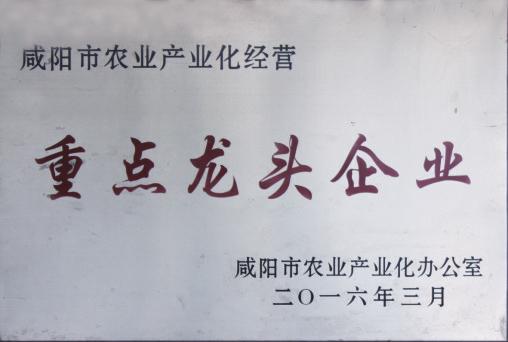 咸阳市农业产业化经营
重点龙头企业
咸阳市农业产业化办公室
二〇一六年三月